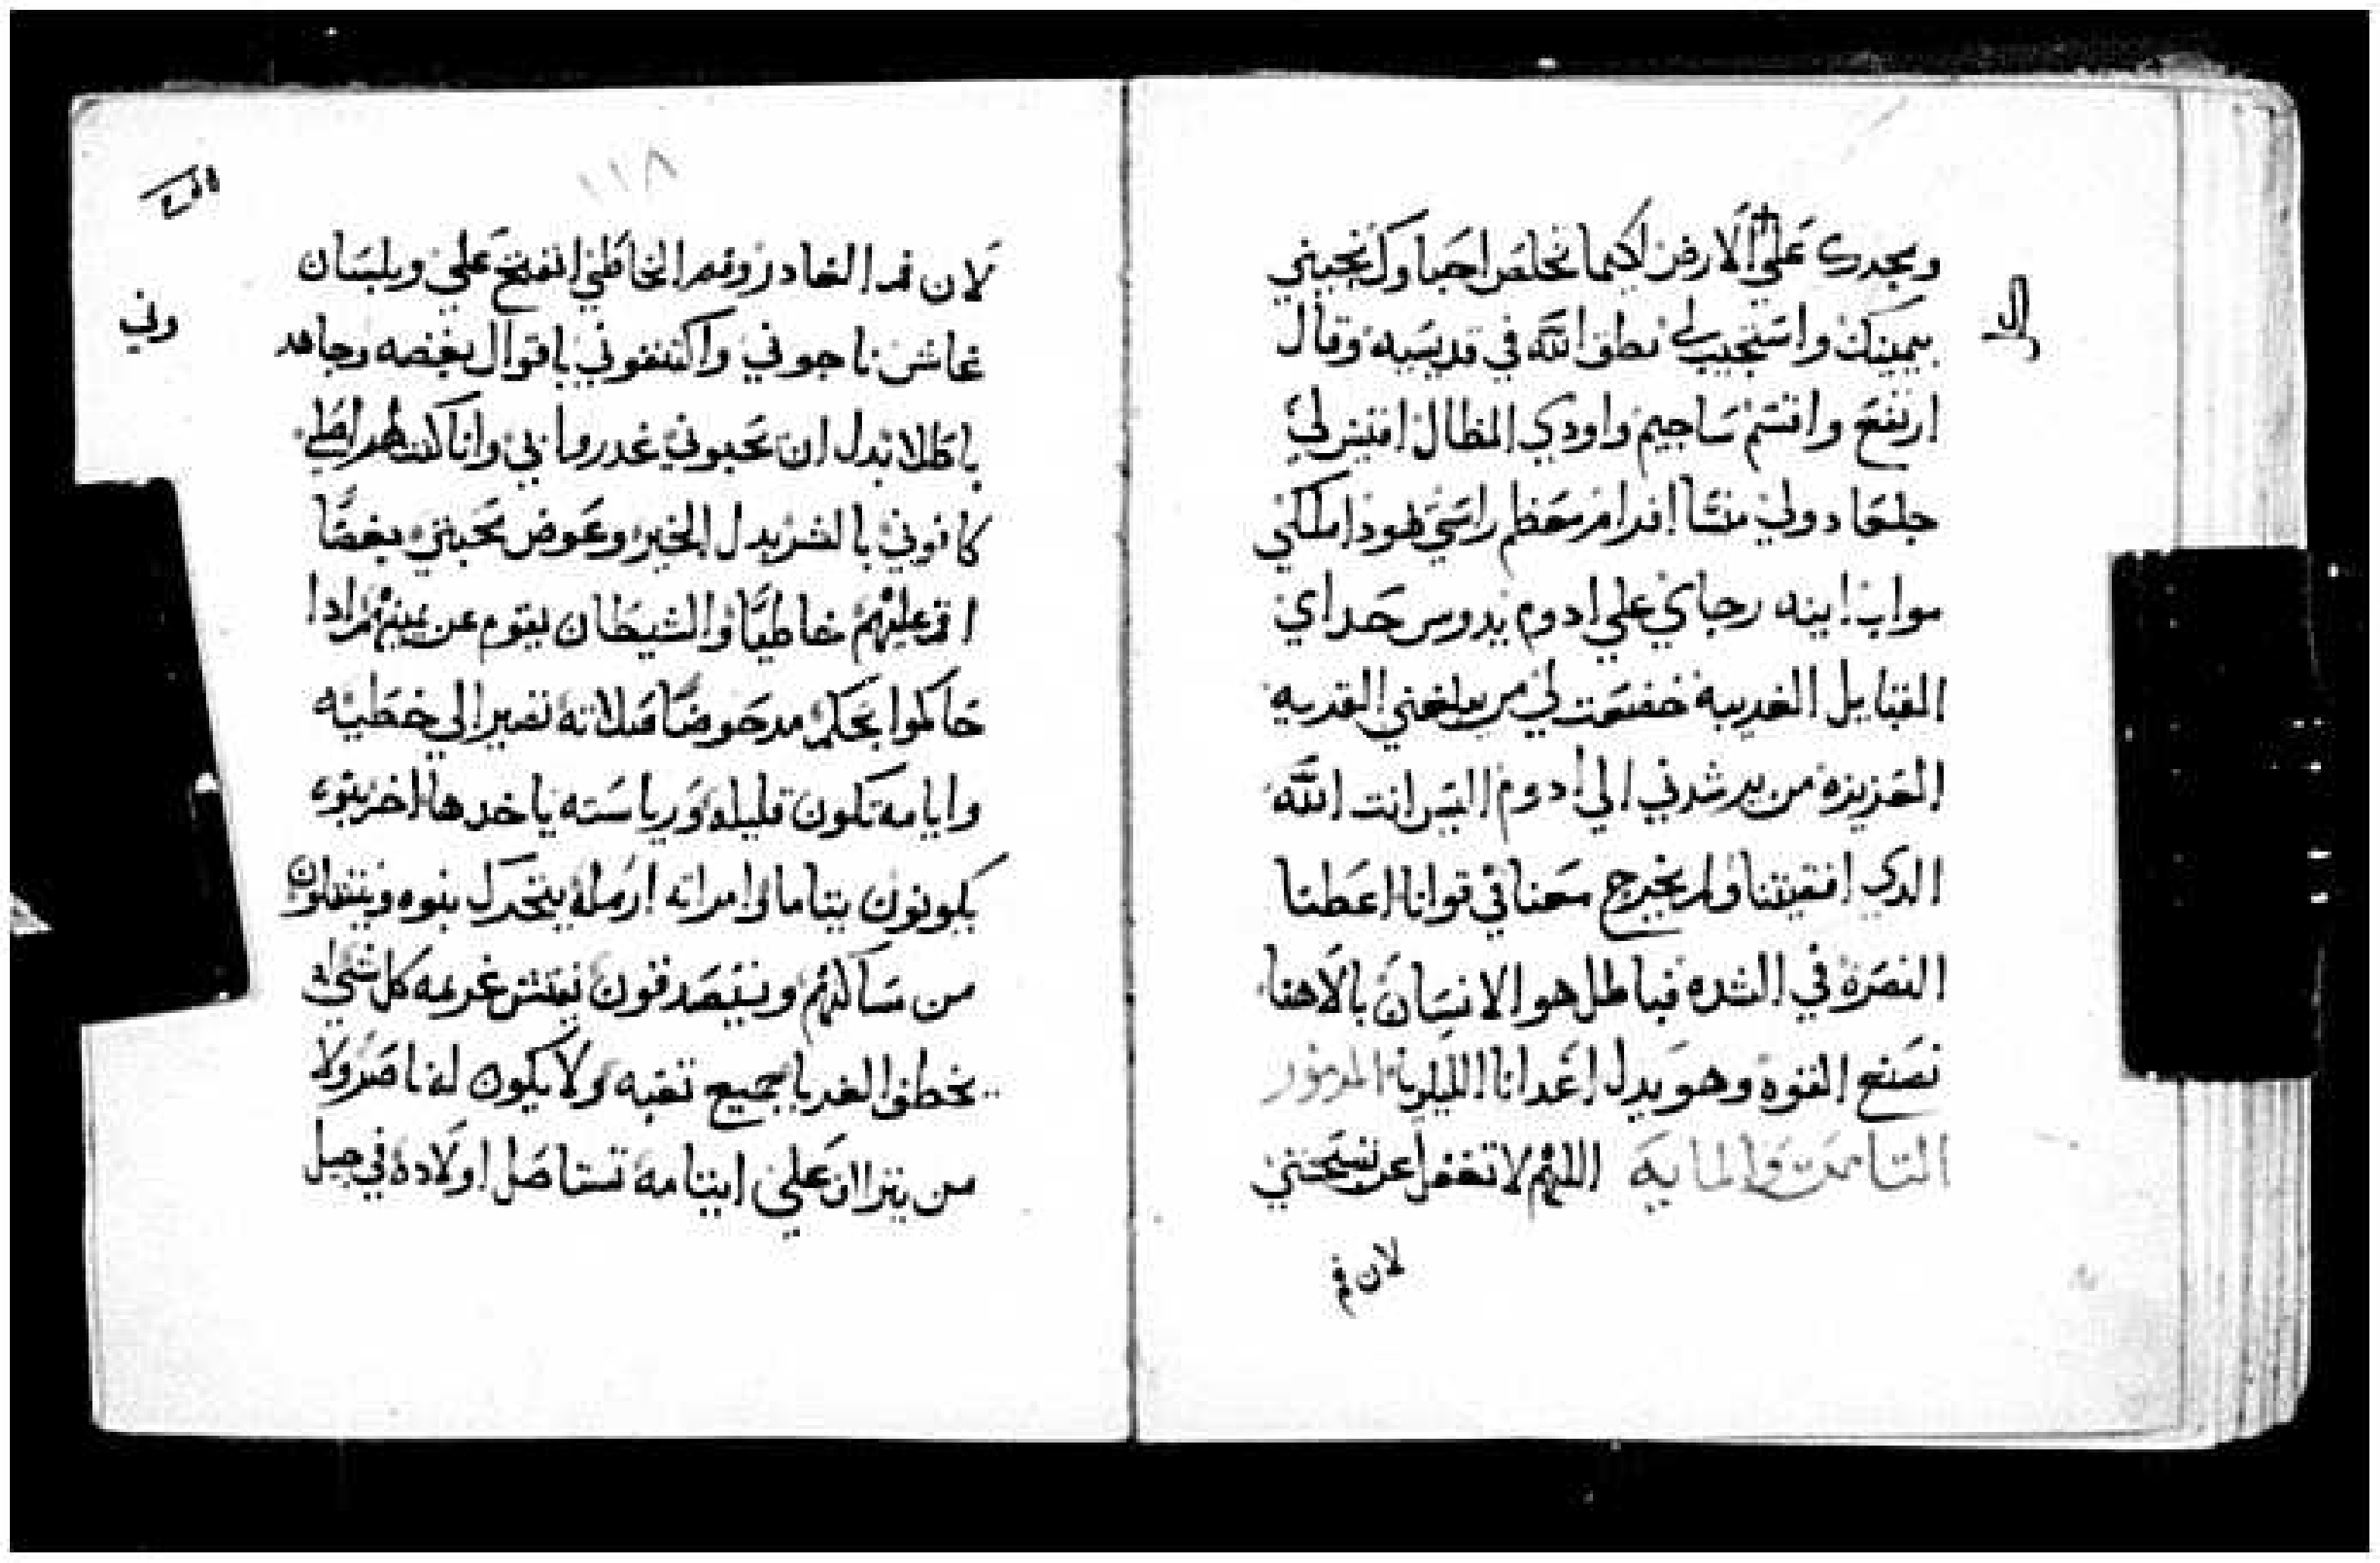 ومجدك علي الارض لكيما تخلص احباوك نجيني
بيمينك واستجيب لي نطق الله في قديسيه وقال
ارتفع واقسم ساجيم واودي المظال اقيس لي
جلعاد ولي منسا افرام معظم راسي يهودا ملكي
مواب ابنه رجاي علي ادوم يدوس حداي
القبايل الغريبه خضعت لي من يبلغني القريه
العزيزه من يرشدني الي ادوم اليس انت الله
الدي اقصيتنا ولم يخرج معنا في قوانا اعطنا
النصره في الشده فباطل هو الانسان بالاهنا
نصنع القوه وهو يدل اعدانا الليلويا المزمور
التامن والمايه اللهم لا تغفل عن تسبحتي
لان فم
١١٨
لان فم الغادر وفم الخاطي انفتح علي وبلسان
غاش ناجوني واكتنفوني باقوال بغضه وجاهد
وني
باطلا بدل ان تحبوني غدروا بي وانا كنت لهم اصلي
كافوني بالشر بدل الخير وعوض محبتي بغضا
اقم عليهم خاطيا والشيطان يقوم عن يمينهم ادا
حاكموا بحكم مدحوضا صلاته تصير الي خطيه
وايامه تكون قليله ورياسته ياخدها اخر بنوه
يكونون يتاما وامراته ارمله يتحرك بنوه وينتقلون
من مساكنهم ويتصدقون يفتش غريمه كل شي له
يخطف الغربا جميع تعبه ولا يكون له ناصر ولا
من يتراف علي ايتامه تستاصل اولاده في جيل